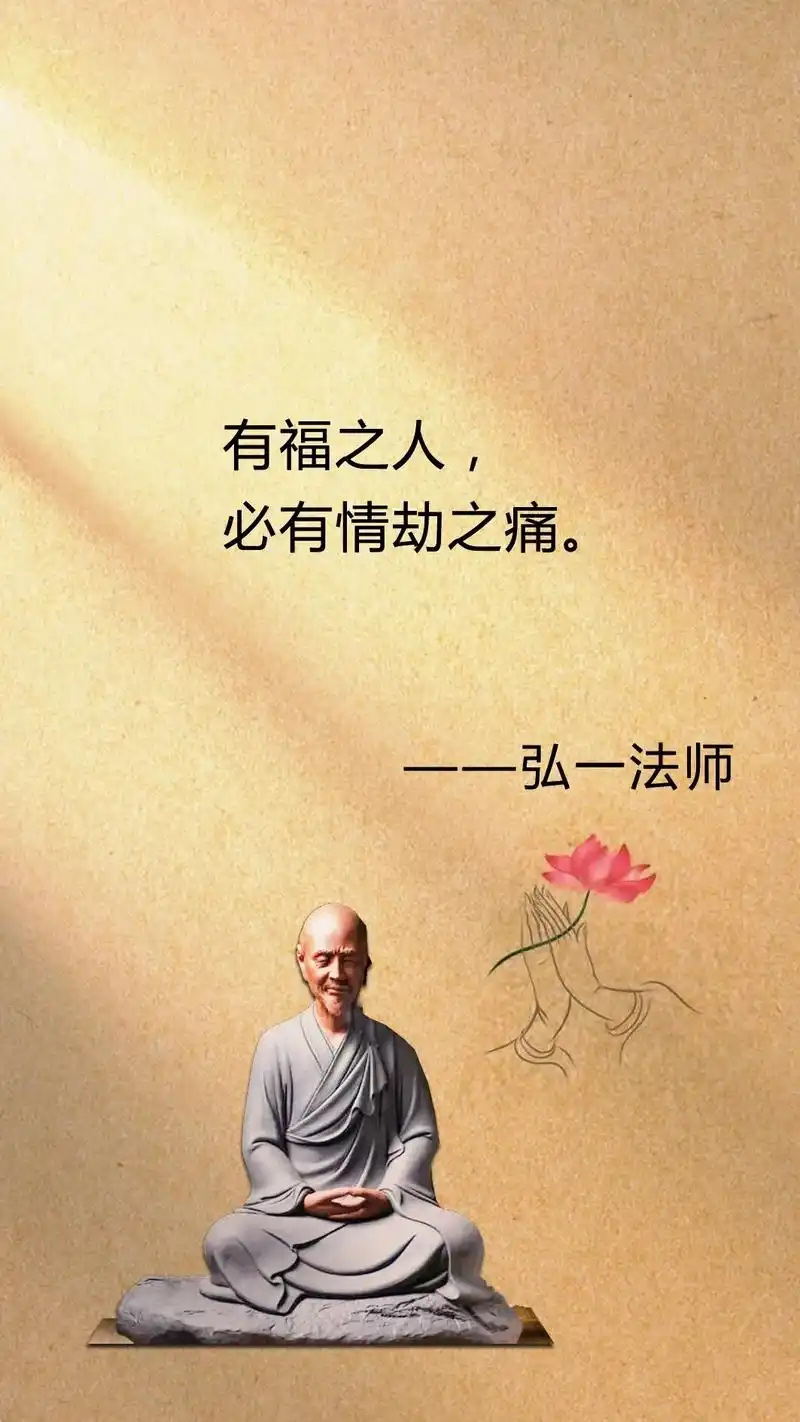 有福之人，
必有情劫之痛。
——弘一法师